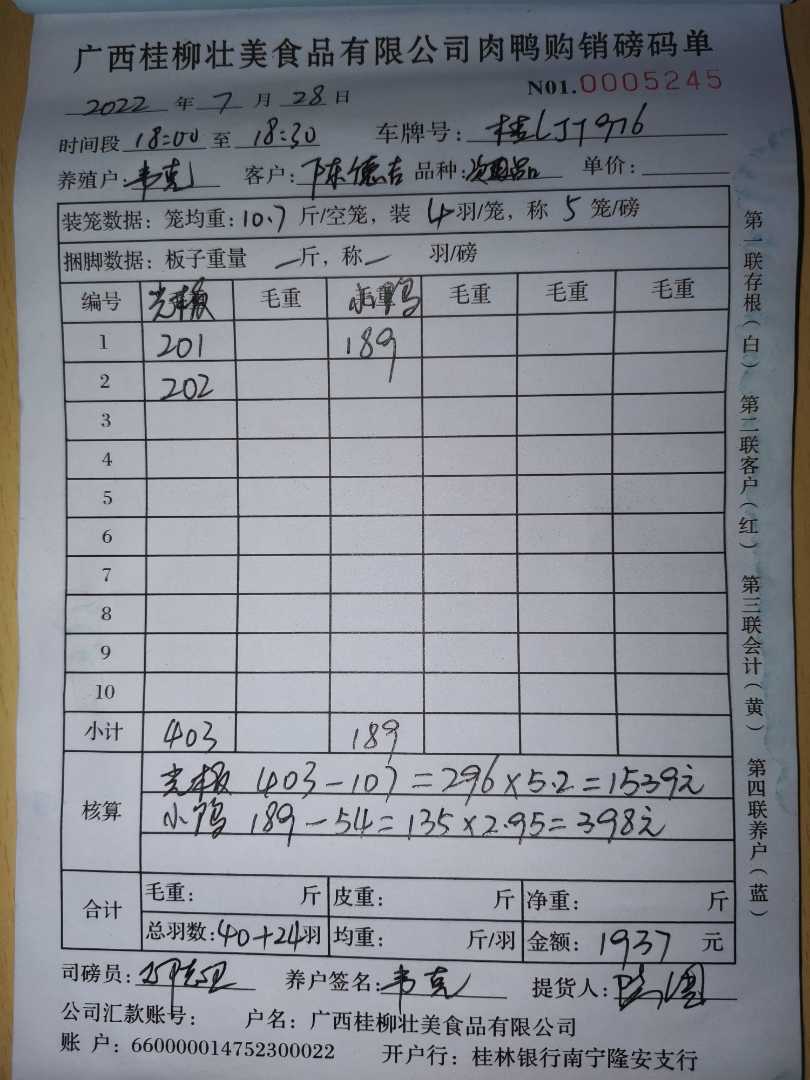 广西桂柳壮美食品有限公司肉鸭购销磅码单
2022 年 7 月 28 日 N01.0005245
时间段 18:00 至 18:30 车牌号: 桂LJ1976
养殖户: 韦克 客户: 陈德吉 品种: 次品 单价:
装笼数据: 笼均重: 10.7 斤/空笼, 装 4 羽/笼, 称 5 笼/磅
捆脚数据: 板子重量 — 斤, 称 — 羽/磅
编号 光板 毛重 小鸭 毛重 毛重 毛重
1 201 189
2 202
3
4
5
6
7
8
9
10
小计 403 189
核算 光板 403-107=296×5.2=1539元
小鸭 189-54=135×2.95=398元
合计 毛重: 斤 皮重: 斤 净重: 斤
总羽数: 40+24羽 均重: 斤/羽 金额: 1937 元
司磅员: 养户签名: 韦克 提货人:
公司汇款账号: 户名: 广西桂柳壮美食品有限公司
账 户: 660000014752300022 开户行: 桂林银行南宁隆安支行
第一联存根(白) 第二联客户(红) 第三联会计(黄) 第四联养户(蓝)